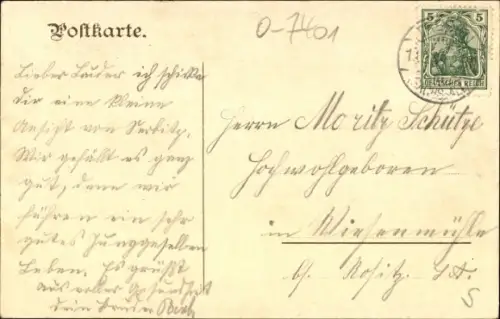 Postkarte.
O-7401
5
DEUTSCHES REICH
Lieber Bruder ich schicke
dir eine kleine
Ansicht von Serbitz.
Mir gefällt es ganz
gut, denn wir
führen ein sehr
gutes Junggesellen
Leben. Es grüßt
aus voller Gesundheit
dein Bruder
Herrn Moritz Schütze
Hochwohlgeboren
in Wiesenmühle
bh. Rositz. S.A.
S